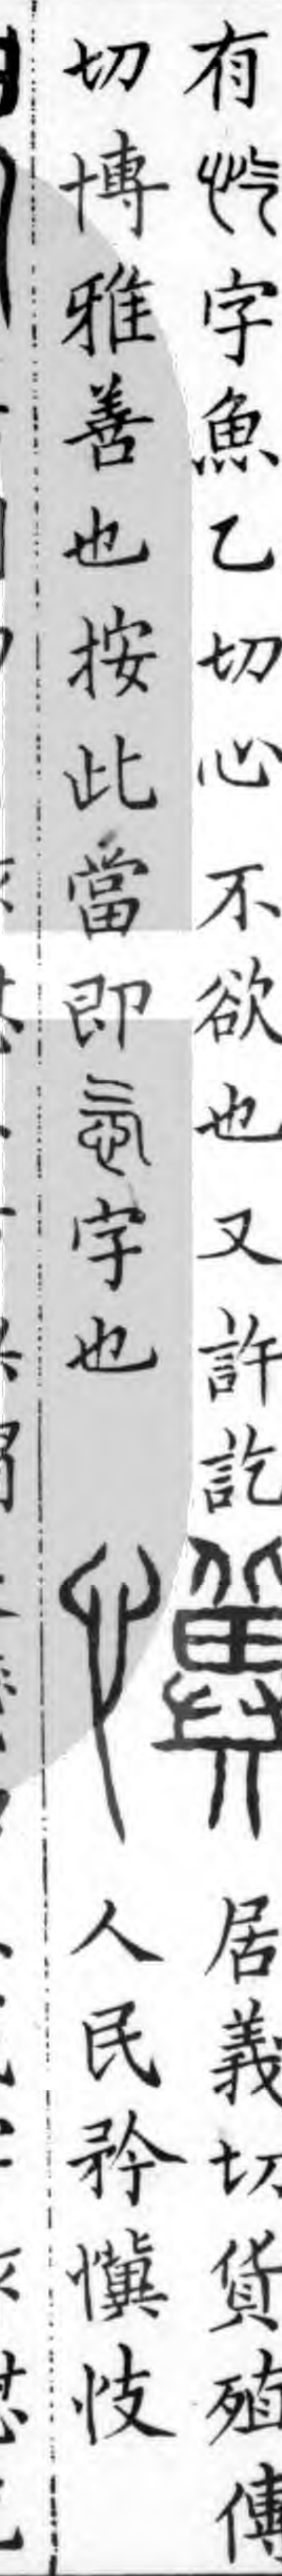 有忔字魚乙切心不欲也又許訖
居義切貨殖傳
切博雅善也按此當即字也
人民矜懻忮